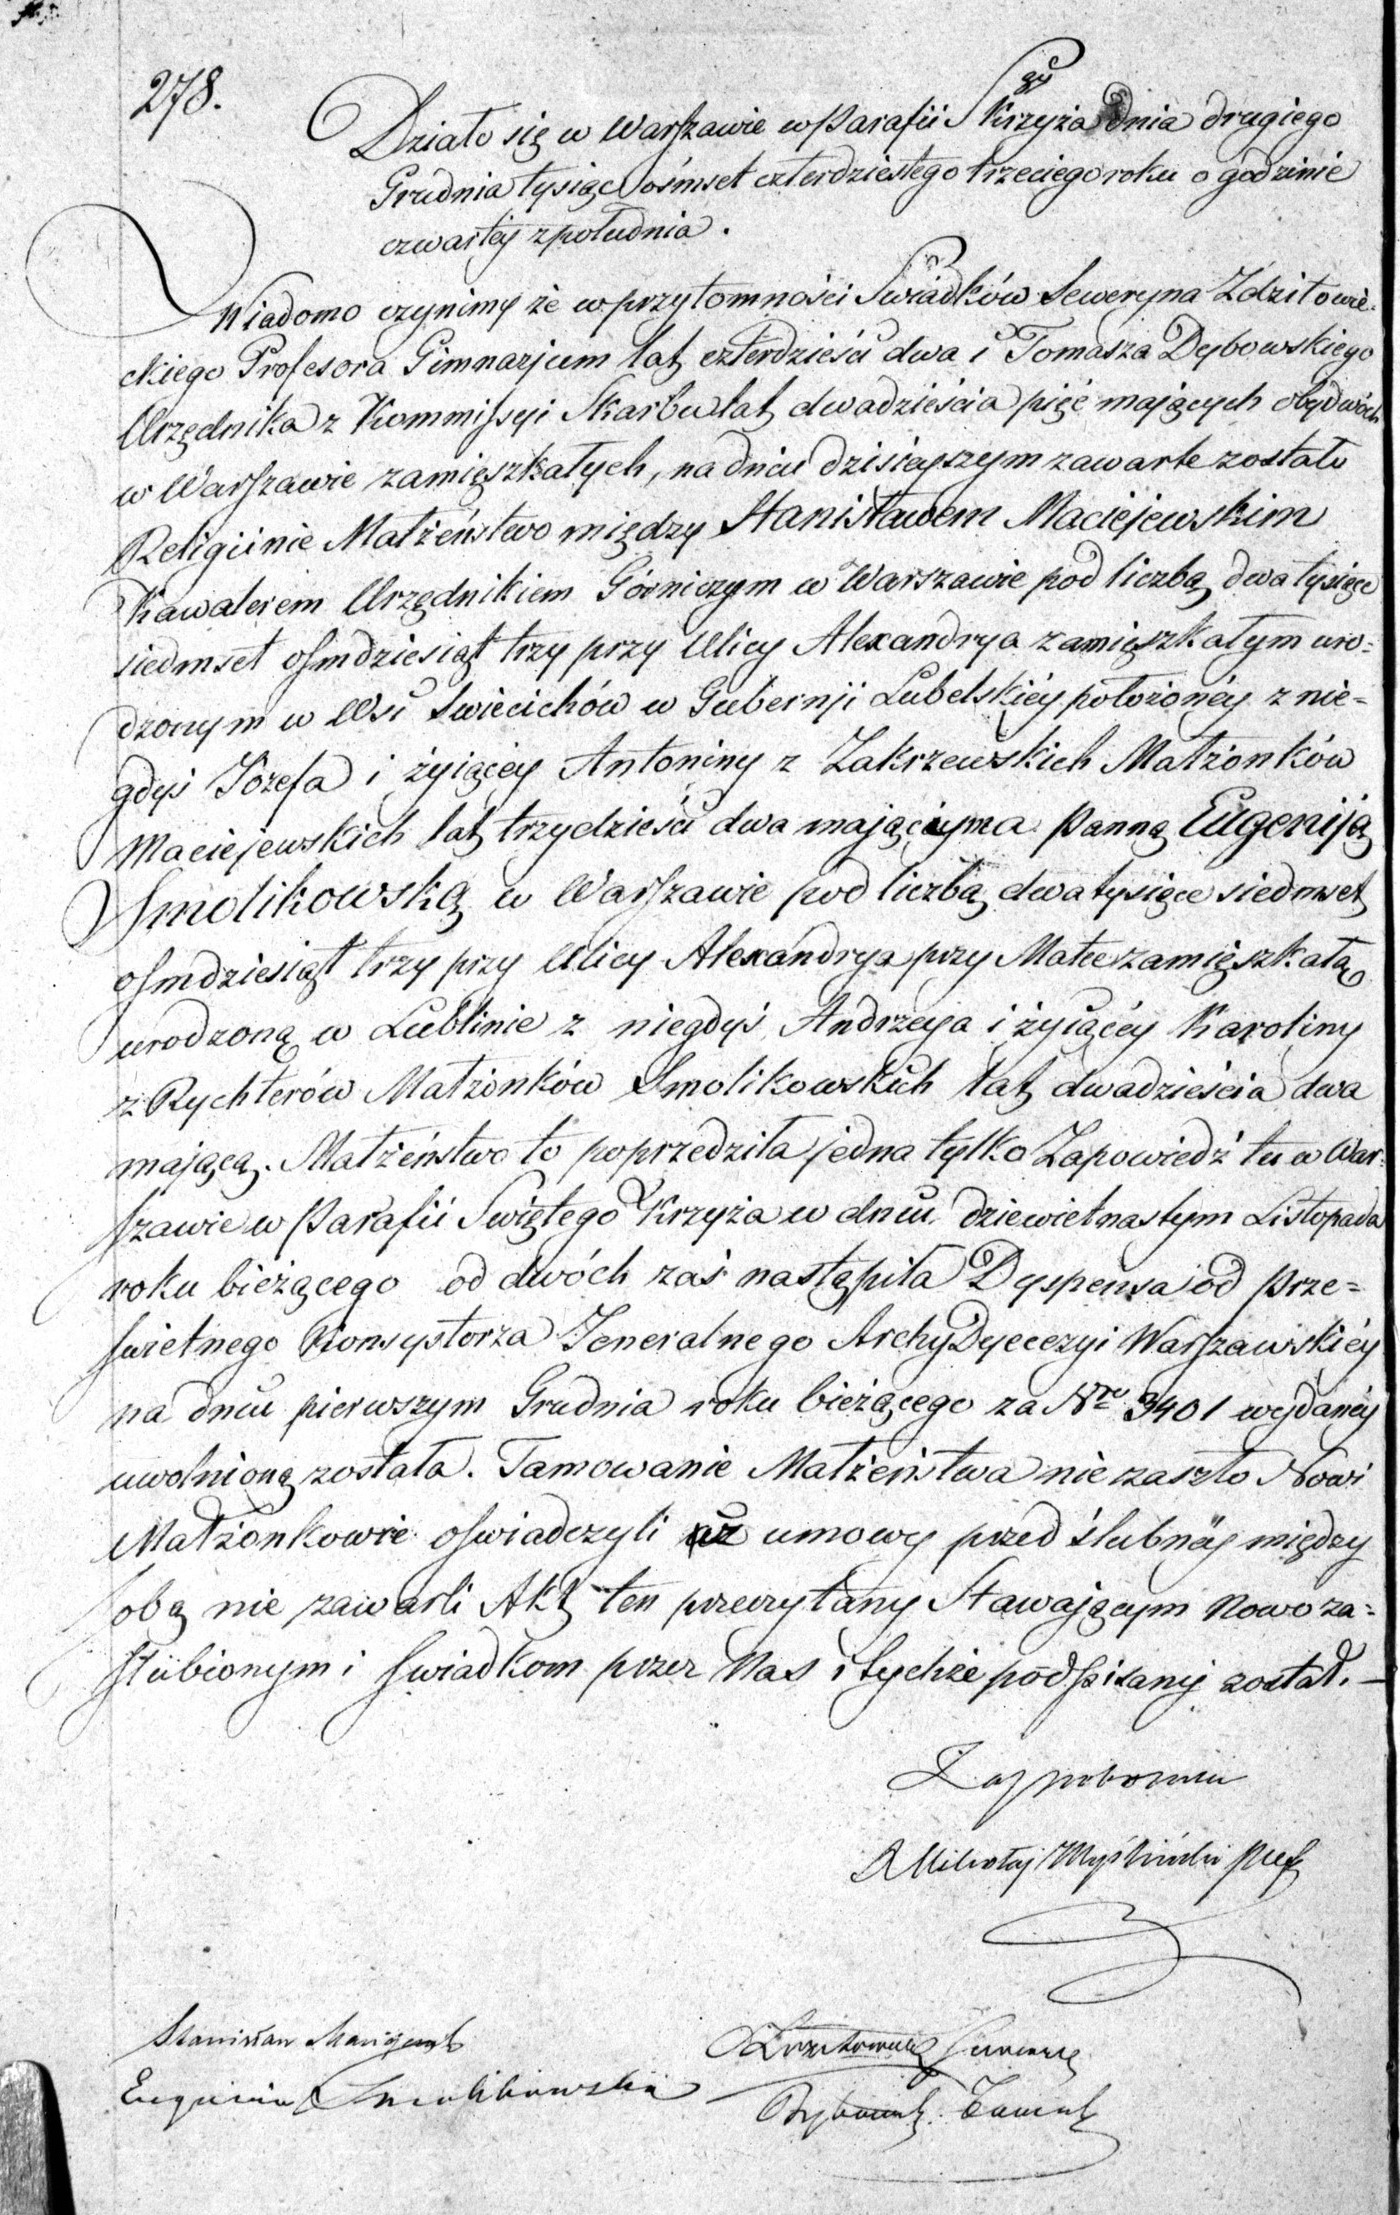 278.
Działo się w Warszawie w Parafii Sgo Krzyża dnia drugiego
Grudnia tysiąc ośmset czterdziestego trzeciego roku o godzinie
czwartéy z południa.
Wiadomo czynimy że w przytomności Swiadków Seweryna Zdzitowie-
ckiego Profesora Gimnazjum lat czterdzieści dwa i Tomasza Dybowskiego
Urzędnika z Kommissyi Skarbu lat dwadzieścia pięć mających obydwóch
w Warszawie zamięszkałych, na dniu dzisieyszym zawarte zostało
Religiinie Małżeństwo między Stanisławem Maciejewskim
Kawalerem Urzędnikiem Górniczym w Warszawie pod liczbą dwa tysiące
siedmset osmdziesiąt trzy przy Ulicy Alexandrya zamięszkałym uro-
dzonym w Wsi Swiecichów w Gubernji Lubelskiéy położonéy z nie-
gdyś Józefa i żyiącéy Antoniny z Zakrzewskich Małżonków
Maciejewskich lat trzydzieści dwa mającym a Panną Eugeniją
Smolikowską w Warszawie pod liczbą dwa tysiące siedmset
osmdziesiąt trzy przy Ulicy Alexandrya przy Matce zamięszkałą
urodzoną w Lublinie z niegdyś Andrzeya i żyiącéy Karoliny
z Rychterów Małżonków Smolikowskich lat dwadzieścia dwa
mającą. Małżeństwo to poprzedziła jedna tylko Zapowiedź tu w War-
szawie w Parafii Swiętego Krzyża w dniu dziewietnastym Listopada
roku bieżącego od dwóch zaś nastąpiła Dyspensa od Prze-
swietnego Konsystorza Jeneralnego ArchyDyecezyi Warszawskiéy
na dniu pierwszym Grudnia roku bieżącego za Nro 3401 wydanéy
uwolnioną została. Tamowanie Małżeństwa nie zaszło Nowi
Małżonkowie oswiadczyli iż umowy przed ślubnéy między
sobą nie zawarli Akt ten przeczytany Stawającym Nowo za-
slubionym i swiadkom przez Nas i tychże podpisany został. —
X Mikołaj Myśliński
Stanisław Maciejewski
Eugenia Smolikowska
Zdzitowiecki Seweryn
Dybowski Tomasz